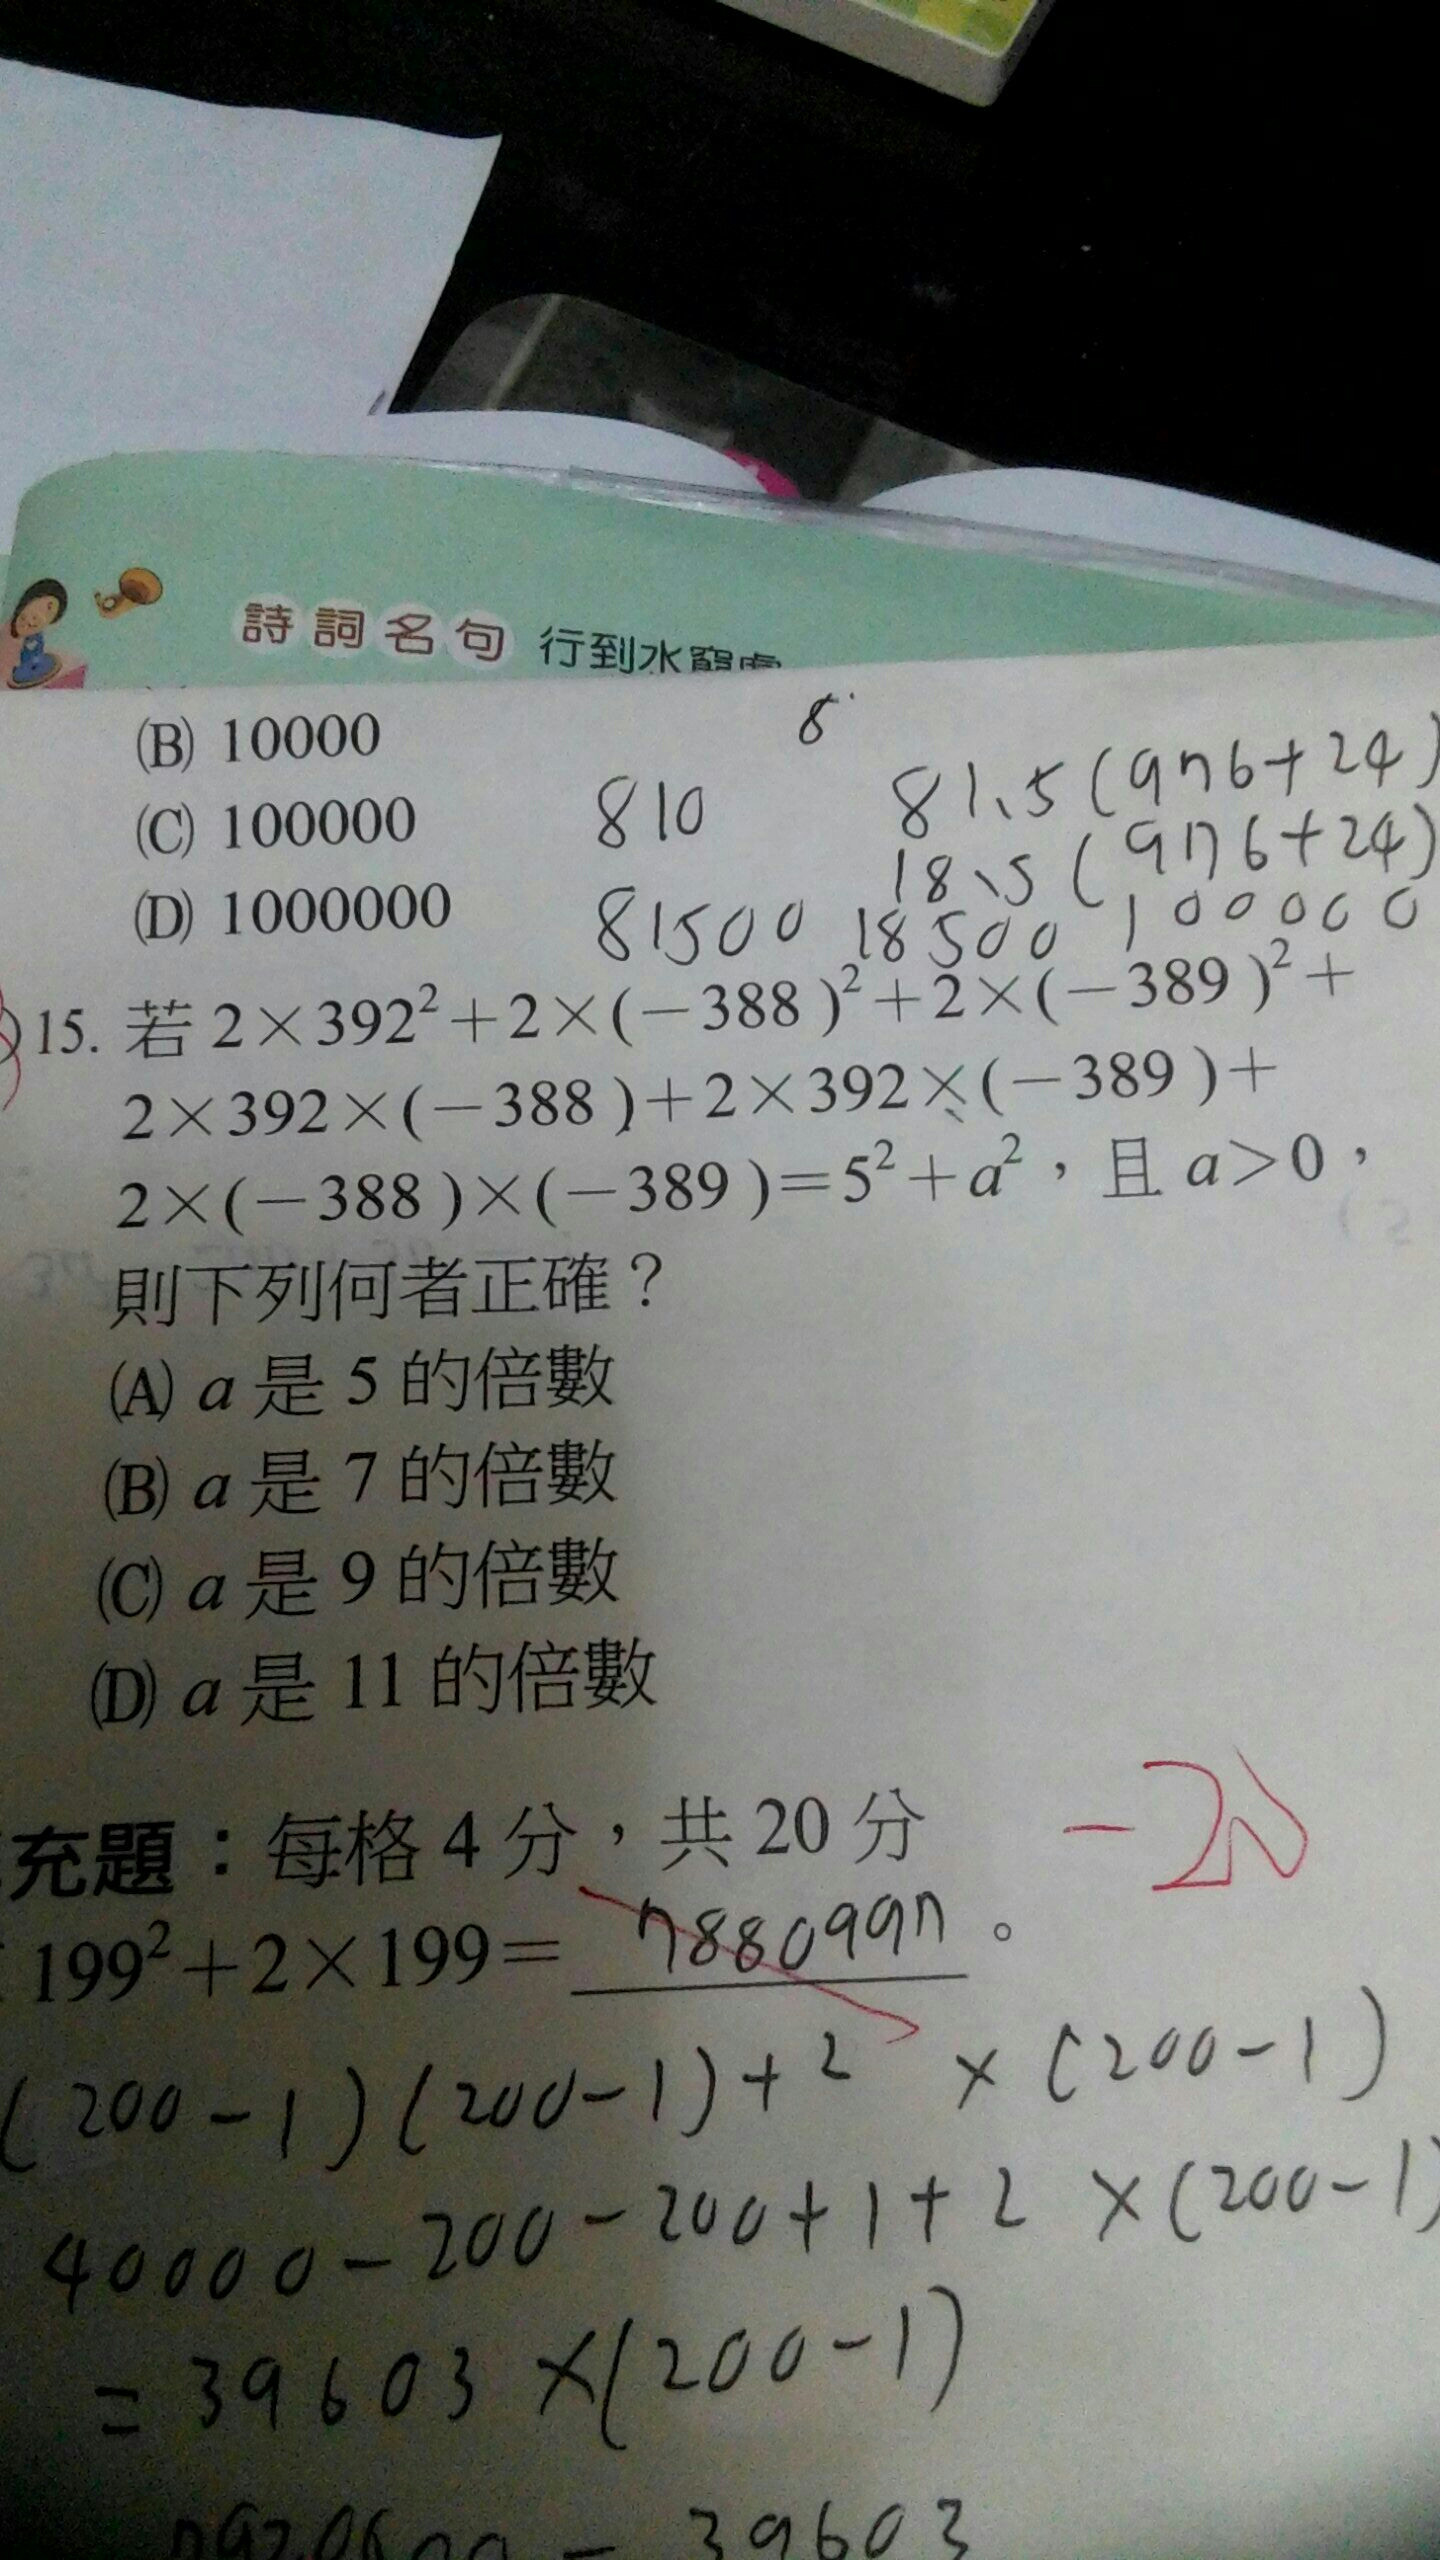 詩詞名句 行到水窮處
8
(B) 10000
81.5(976+24)
(C) 100000 810
18.5(976+24)
(D) 1000000 81500 18500 100000
15. 若 2×392²+2×(−388)²+2×(−389)²+
2×392×(−388)+2×392×(−389)+
2×(−388)×(−389)=5²+a²，且 a>0，
則下列何者正確？
(A) a 是 5 的倍數
(B) a 是 7 的倍數
(C) a 是 9 的倍數
(D) a 是 11 的倍數
充題：每格 4 分，共 20 分 −20
199²+2×199= 7880997 。
(200−1)(200−1)+2 ×(200−1)
40000−200−200+1+2 ×(200−1)
=39603×(200−1)
− 39603